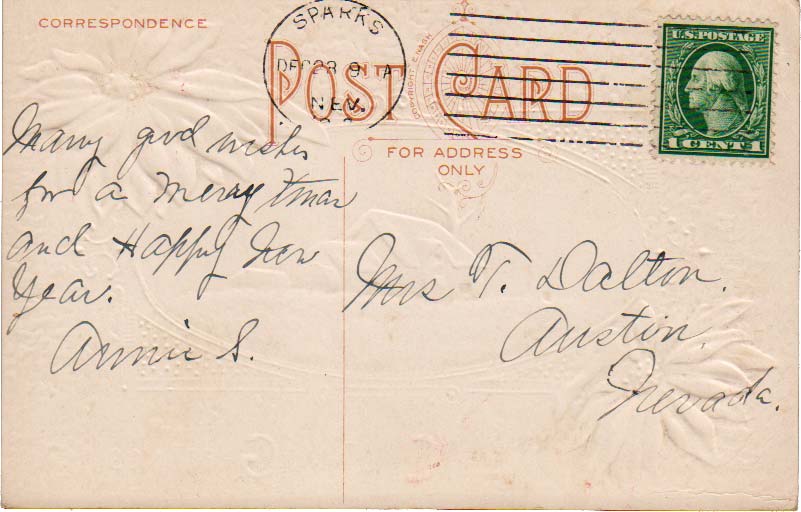 CORRESPONDENCE
SPARKS
NEV.
POST CARD
COPYRIGHT E. NASH
U.S. POSTAGE
1 CENT 1
FOR ADDRESS
ONLY
Many good wishes
for a merry Xmas
and Happy New
Year.
Annie S.
Mrs T. Dalton.
Austin,
Nevada.